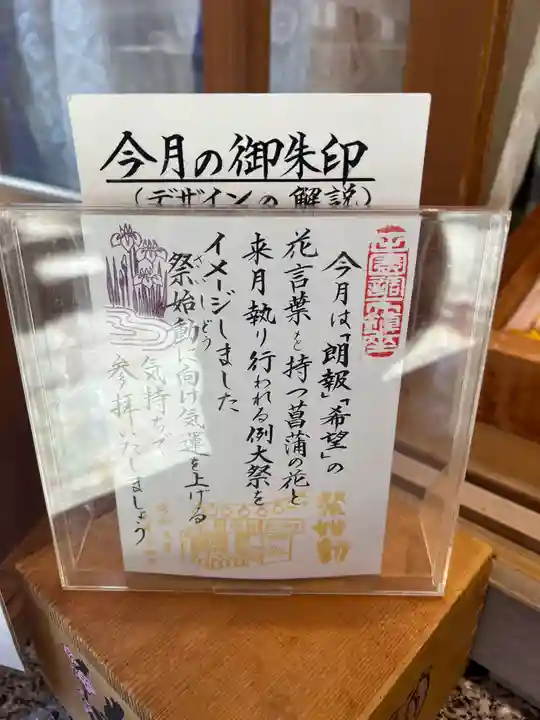 今月の御朱印
(デザインの解説)
今月は「朗報」「希望」の
花言葉を持つ菖蒲の花と
来月執り行われる例大祭を
イメージしました
祭始動に向け気運を上げる
さいしどう
気持ちで
参拝いたしましょう
祭始動